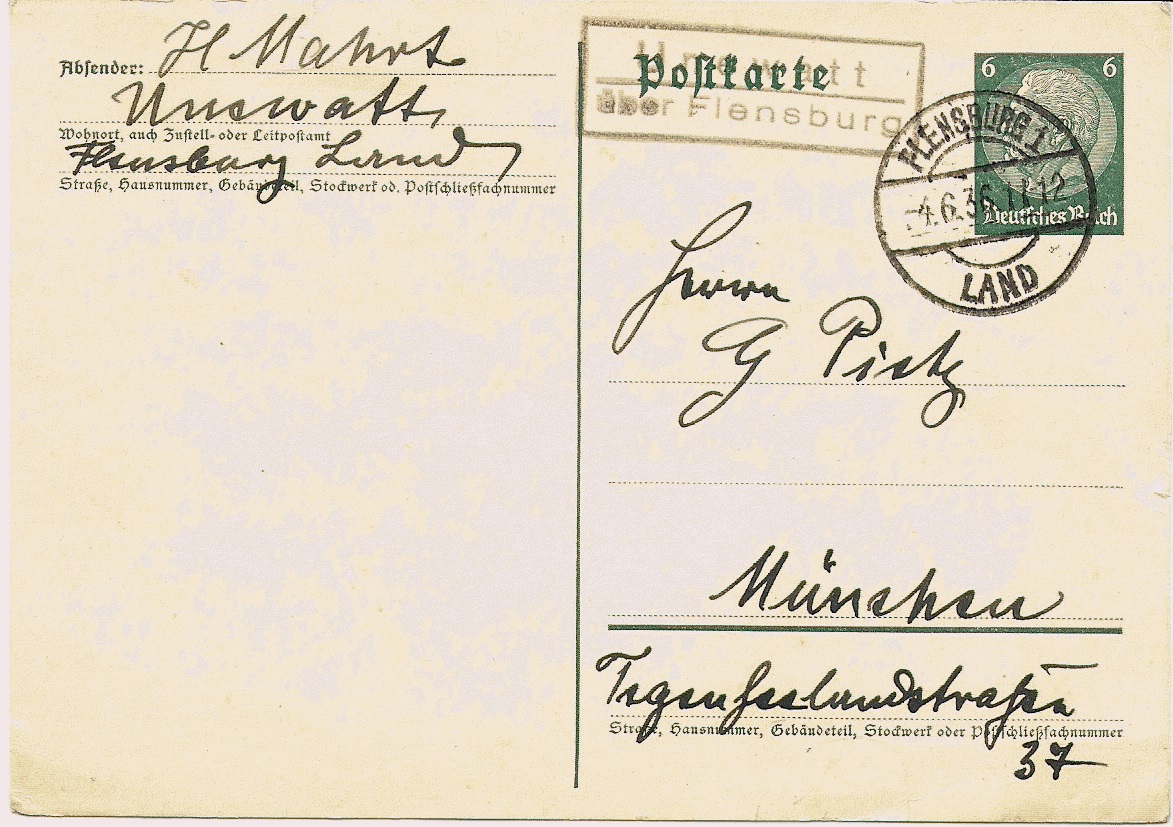 Absender: H Mahrt
Unewatt,
Wohnort, auch Zustell- oder Leitpostamt
Flensburg Land
Straße, Hausnummer, Gebäudeteil, Stockwerk od. Postschließfachnummer
Postkarte
Unewatt
über Flensburg
6 6
Deutsches Reich
FLENSBURG 1
-4.6.36.11-12
LAND
Herrn
G Pietz
München
Tegernseelandstraße
Straße, Hausnummer, Gebäudeteil, Stockwerk oder Postschließfachnummer
37